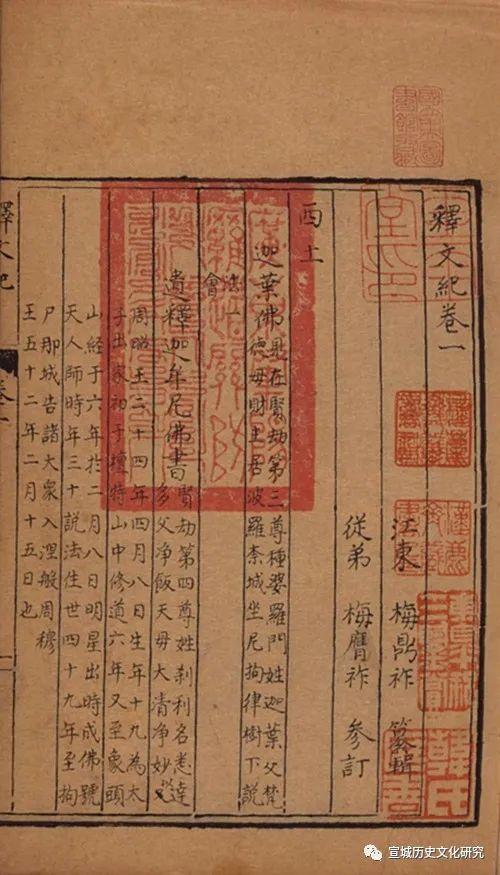 釋文紀卷一
江東 梅鼎祚 纂輯
從弟 梅膺祚 参訂
西土
迦葉佛
見在賢劫第三尊種婆羅門姓迦葉父梵
德母財主居波羅柰城坐尼拘律樹下說
法一
會
遺釋迦牟尼佛書
賢劫第四尊姓刹利名悉達
多父淨飯天母大清淨妙
周昭王二十四年四月八日生年十九為太
子出家初于壇特山中修道六年又至象頭
山經于六年於二月八日明星出時成佛號
天人師時年三十說法住世四十九年至拘
尸那城告諸大衆入涅般周穆
王五十二年二月十五日也
釋文紀
卷一
宣城历史文化研究